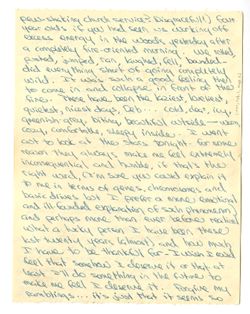 pew-shaking church service? Disgraceful!) Four
year olds if you had seen us working off
excess energy in the woods yesterday after
a completely fire-oriented morning - we rolled,
pushed, jumped, ran, laughed, fell, bounded -
did everything short of going completely
wild. It was such a good feeling then
to come in and collapse in front of the
fire. These have been the laziest, loveliest,
quietest, nicest days, Ch... cold, clear, icy,
greenish-gray, biting, beautiful outside - warm,
cozy, comfortable, sleepy inside. I went
out to look at the stars tonight - for some
reason they always make me feel extremely
inconsequential and humble, if that's the
right word, (I'm sure you could explain it
to me in terms of genes, chromosomes and
basic drives but I prefer a more emotional
and ill-founded explanation of such phenomenon)
and perhaps more than ever before realized
what a lucky person I have been these
last twenty years (almost) and how much
I have to be thankful for - I wish I could
feel that somehow I deserve it or that at
least I'll do something in the future to
make me feel I deserve it. Forgive my
ramblings... it's just that it seems so